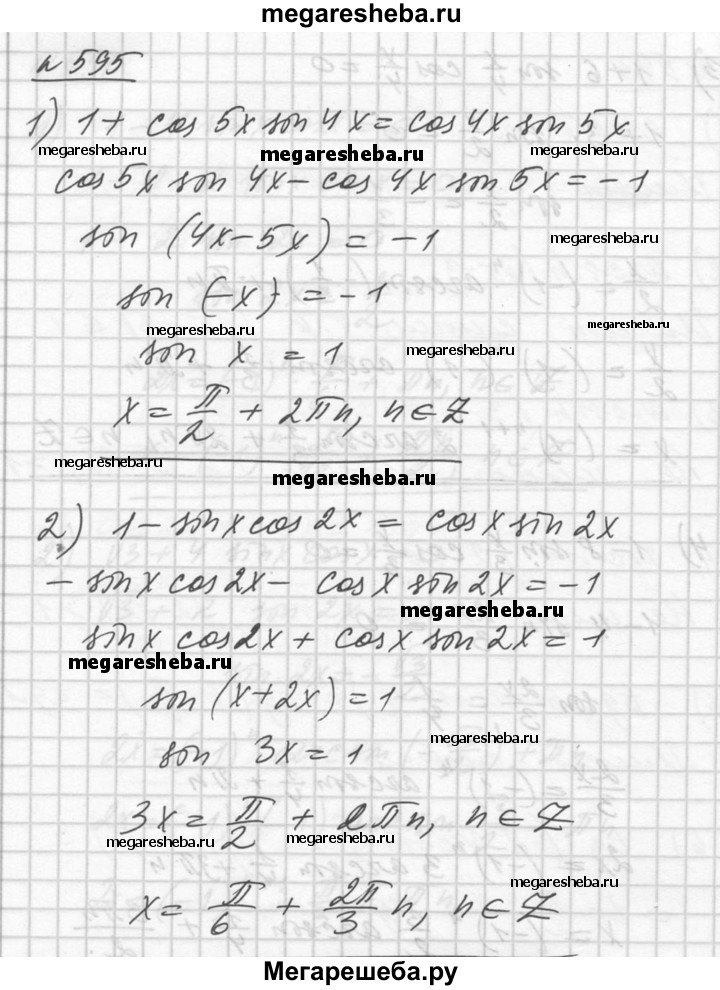 megaresheba.ru
№ 595
1) 1 + cos 5x sin 4x = cos 4x sin 5x
megaresheba.ru megaresheba.ru megaresheba.ru
cos 5x sin 4x - cos 4x sin 5x = -1
sin (4x - 5x) = -1
megaresheba.ru
sin (-x) = -1
megaresheba.ru megaresheba.ru
sin x = 1
megaresheba.ru
x = π/2 + 2πn, n ∈ Z
megaresheba.ru
megaresheba.ru
2) 1 - sin x cos 2x = cos x sin 2x
- sin x cos 2x - cos x sin 2x = -1
megaresheba.ru
sin x cos 2x + cos x sin 2x = 1
megaresheba.ru
sin (x + 2x) = 1
megaresheba.ru
sin 3x = 1
3x = π/2 + 2πn, n ∈ Z
megaresheba.ru megaresheba.ru
megaresheba.ru
x = π/6 + 2π/3 n, n ∈ Z
Мегарешеба.ру